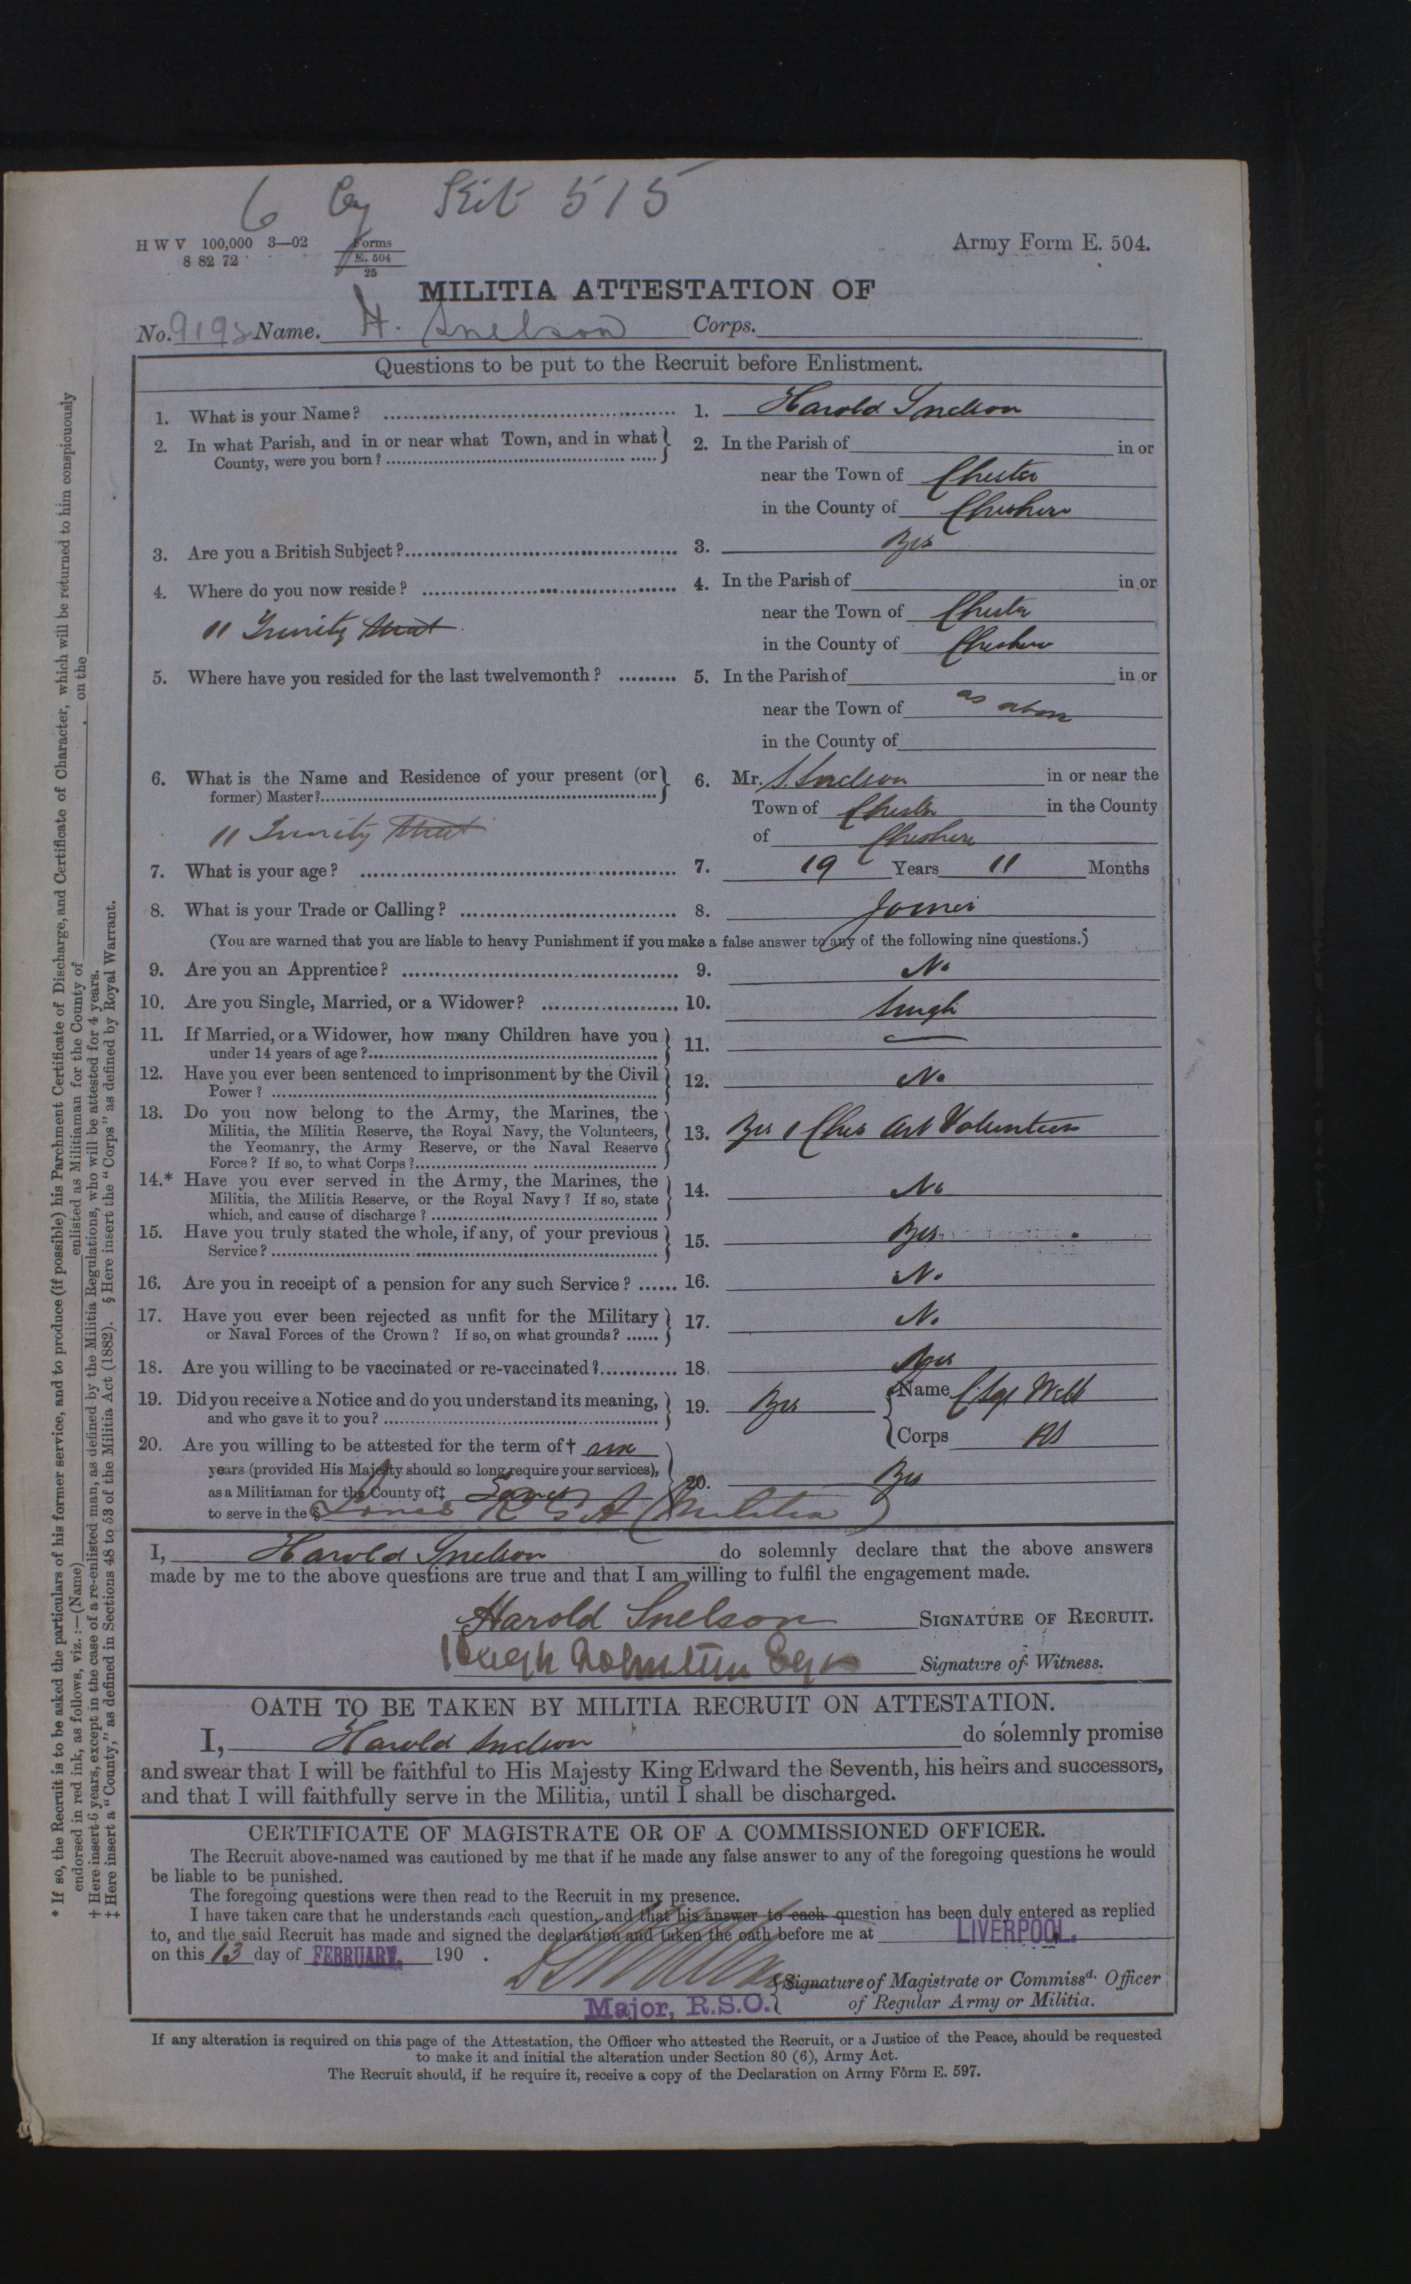 6 Coy Kit 515
H W V 100,000 3—02 Forms
8 82 72 E. 504
25
Army Form E. 504.
MILITIA ATTESTATION OF
No. 9193 Name. H. Snelson Corps.
Questions to be put to the Recruit before Enlistment.
1. What is your Name? 1. Harold Snelson
2. In what Parish, and in or near what Town, and in what County, were you born? 2. In the Parish of in or
near the Town of Chester
in the County of Cheshire
3. Are you a British Subject? 3. Yes
4. Where do you now reside? 4. In the Parish of in or
11 Trinity Street near the Town of Chester
in the County of Cheshire
5. Where have you resided for the last twelvemonth? 5. In the Parish of in or
near the Town of as above
in the County of
6. What is the Name and Residence of your present (or former) Master? 6. Mr. S. Snelson in or near the
Town of Chester in the County
11 Trinity Street of Cheshire
7. What is your age? 7. 19 Years 11 Months
8. What is your Trade or Calling? 8. Joiner
(You are warned that you are liable to heavy Punishment if you make a false answer to any of the following nine questions.)
9. Are you an Apprentice? 9. No
10. Are you Single, Married, or a Widower? 10. Single
11. If Married, or a Widower, how many Children have you
under 14 years of age? 11. —
12. Have you ever been sentenced to imprisonment by the Civil
Power? 12. No
13. Do you now belong to the Army, the Marines, the
Militia, the Militia Reserve, the Royal Navy, the Volunteers, 13. Yes 1 Ches Art Volunteers
the Yeomanry, the Army Reserve, or the Naval Reserve
Force? If so, to what Corps?
14.* Have you ever served in the Army, the Marines, the
Militia, the Militia Reserve, or the Royal Navy? If so, state 14. No
which, and cause of discharge?
15. Have you truly stated the whole, if any, of your previous
Service? 15. Yes
16. Are you in receipt of a pension for any such Service? 16. No
17. Have you ever been rejected as unfit for the Military
or Naval Forces of the Crown? If so, on what grounds? 17. No
18. Are you willing to be vaccinated or re-vaccinated? 18 Yes
19. Did you receive a Notice and do you understand its meaning,
and who gave it to you? 19. Yes Name Webb
Corps
20. Are you willing to be attested for the term of† six
years (provided His Majesty should so long require your services),
as a Militiaman for the County of‡ Lancs 20. Yes
to serve in the § Lancs R G A (Militia)
I, Harold Snelson do solemnly declare that the above answers
made by me to the above questions are true and that I am willing to fulfil the engagement made.
Harold Snelson SIGNATURE OF RECRUIT.
Signature of Witness.
OATH TO BE TAKEN BY MILITIA RECRUIT ON ATTESTATION.
I, Harold Snelson do solemnly promise
and swear that I will be faithful to His Majesty King Edward the Seventh, his heirs and successors,
and that I will faithfully serve in the Militia, until I shall be discharged.
CERTIFICATE OF MAGISTRATE OR OF A COMMISSIONED OFFICER.
The Recruit above-named was cautioned by me that if he made any false answer to any of the foregoing questions he would
be liable to be punished.
The foregoing questions were then read to the Recruit in my presence.
I have taken care that he understands each question, and that his answer to each question has been duly entered as replied
to, and the said Recruit has made and signed the declaration and taken the oath before me at LIVERPOOL.
on this 13 day of FEBRUARY. 190 .
Signature of Magistrate or Commissd. Officer
Major, R.S.O. of Regular Army or Militia.
If any alteration is required on this page of the Attestation, the Officer who attested the Recruit, or a Justice of the Peace, should be requested
to make it and initial the alteration under Section 80 (6), Army Act.
The Recruit should, if he require it, receive a copy of the Declaration on Army Form E. 597.
* If so, the Recruit is to be asked the particulars of his former service, and to produce (if possible) his Parchment Certificate of Discharge, and Certificate of Character, which will be returned to him conspicuously
endorsed in red ink, as follows, viz.:—(Name) enlisted as Militiaman for the County of , on the
† Here insert 6 years, except in the case of a re-enlisted man, as defined by the Militia Regulations, who will be attested for 4 years.
‡ Here insert a "County," as defined in Sections 48 to 53 of the Militia Act (1882). § Here insert the "Corps" as defined by Royal Warrant.